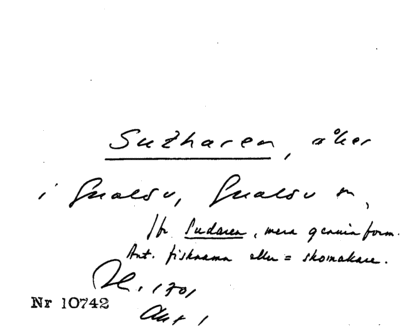 Sutharen, åker
i Gualöv, Gualöv sn,
Jfr Sudaren, mera genuin form.
Ant. fisknamn eller = skomakare.
1701
Nr 10742
Akt 1